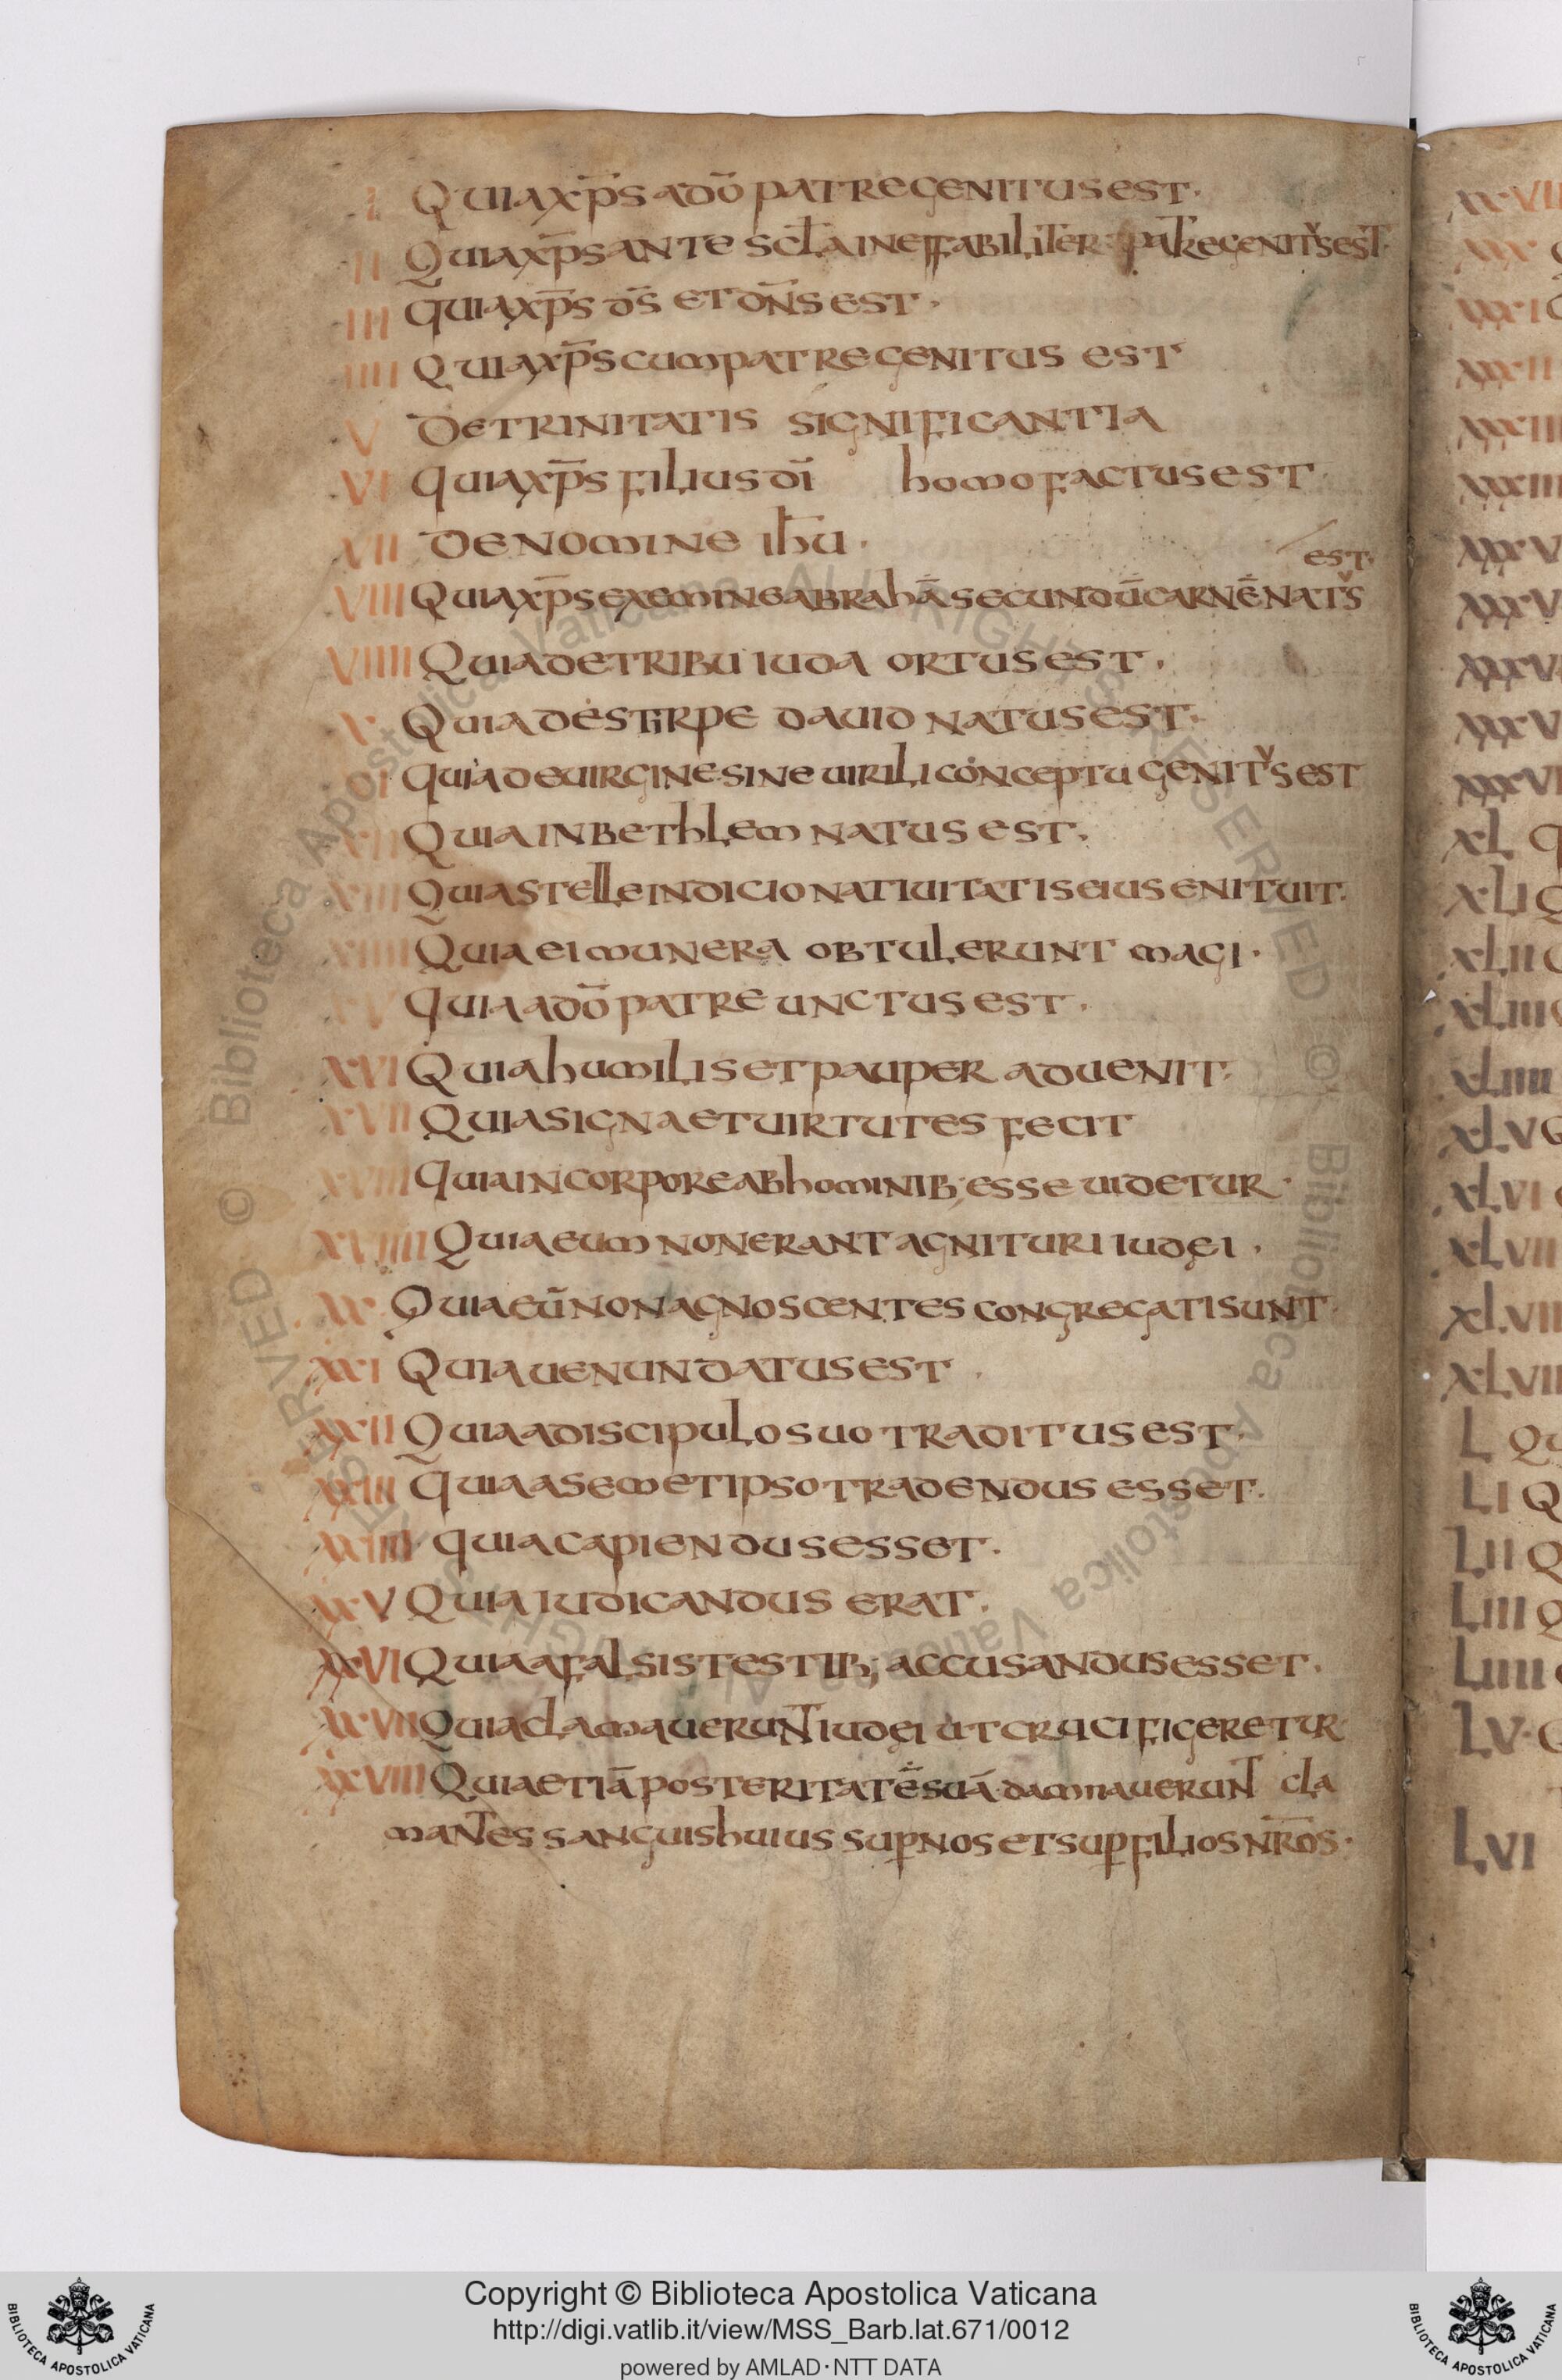 I QUIA XP̄S A DŌ PATRE GENITUS EST·
II QUIA XP̄S ANTE SCL̄A INEFFABILITER PATRE GENITUS EST·
III QUIA XP̄S D̄S ET DN̄S EST·
IIII QUIA XP̄S CUM PATRE GENITUS EST
V DE TRINITATIS SIGNIFICANTIA
VI QUIA XP̄S FILIUS DĪ HOMO FACTUS EST·
VII DE NOMINE IH̄U·
EST·
VIII QUIA XP̄S EX EMINE ABRAHĀ SECUNDŪ CARNĒ NATUS
VIIII QUIA DE TRIBU IUDA ORTUS EST·
X QUIA DE STIRPE DAUID NATUS EST·
XI QUIA DE UIRGINE SINE UIRILI CONCEPTU GENITUS EST
XII QUIA IN BETHLEM NATUS EST·
XIII QUIA STELLE INDICIO NATIUITATIS EIUS ENITUIT·
XIIII QUIA EI MUNERA OBTULERUNT MAGI·
XV QUIA A DŌ PATRE UNCTUS EST·
XVI QUIA HUMILIS ET PAUPER ADUENIT·
XVII QUIA SIGNA ET UIRTUTES FECIT
XVIII QUIA IN CORPORE AB HOMINIB; ESSE UIDETUR·
XVIIII QUIA EUM NON ERANT AGNITURI IUDĘI·
XX QUIA EŪ NON AGNOSCENTES CONGREGATI SUNT·
XXI QUIA UENUNDATUS EST·
XXII QUIA A DISCIPULO SUO TRADITUS EST·
XXIII QUIA A SEMETIPSO TRADENDUS ESSET·
XXIIII QUIA CAPIENDUS ESSET·
XXV QUIA IUDICANDUS ERAT·
XXVI QUIA A FALSIS TESTIB; ACCUSANDUS ESSET·
XXVII QUIA CLAMAUERUNT IUDĘI UT CRUCIFIGERETUR·
XXVIII QUIA ETIĀ POSTERITATĒ SUĀ DAMNAUERUNT CLA
MANTES SANGUIS HUIUS SUꝐ NOS ET SUꝐ FILIOS NR̄OS·
XL Q
XLI Q
XLII
XLIII
XLIIII
XLV Q
XLVI
XLVII
L QU
LI Q
LII Q
LIII Q
LIIII
LV·
LVI
© Biblioteca Apostolica Vaticana ALL RIGHTS RESERVED © Biblioteca Apostolica Vaticana ALL RIGHTS RESERVED
Copyright © Biblioteca Apostolica Vaticana
http://digi.vatlib.it/view/MSS_Barb.lat.671/0012
powered by AMLAD·NTT DATA
BIBLIOTECA APOSTOLICA VATICANA
BIBLIOTECA APOSTOLICA VATICANA